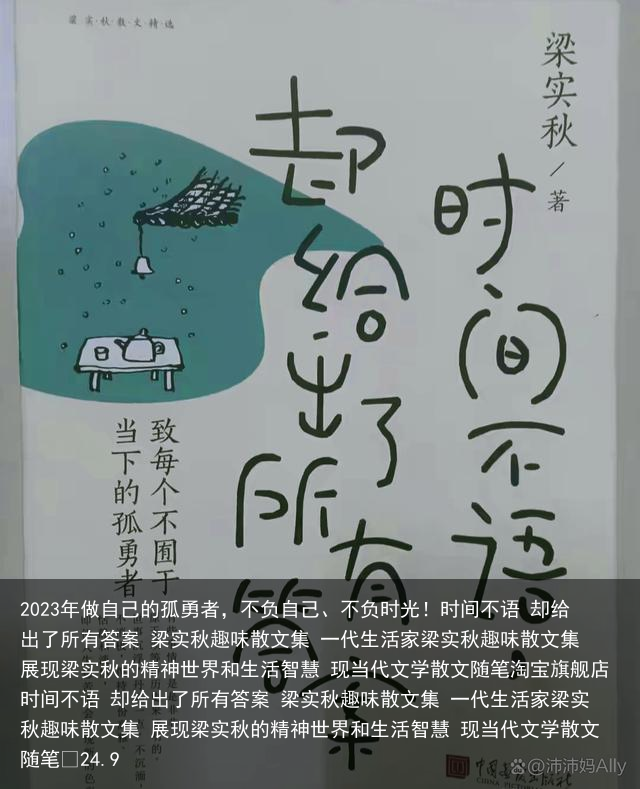 梁·实·秋·散·文·精·选
梁实秋/著
时间不语，
却给出了所有答案
致每个不囿于
当下的孤勇者
2023年做自己的孤勇者，不负自己、不负时光！时间不语 却给
出了所有答案 梁实秋趣味散文集 一代生活家梁实秋趣味散文集
展现梁实秋的精神世界和生活智慧 现当代文学散文随笔淘宝旗舰店
时间不语 却给出了所有答案 梁实秋趣味散文集 一代生活家梁实
秋趣味散文集 展现梁实秋的精神世界和生活智慧 现当代文学散文
随笔□24.9
@沛沛妈Ally